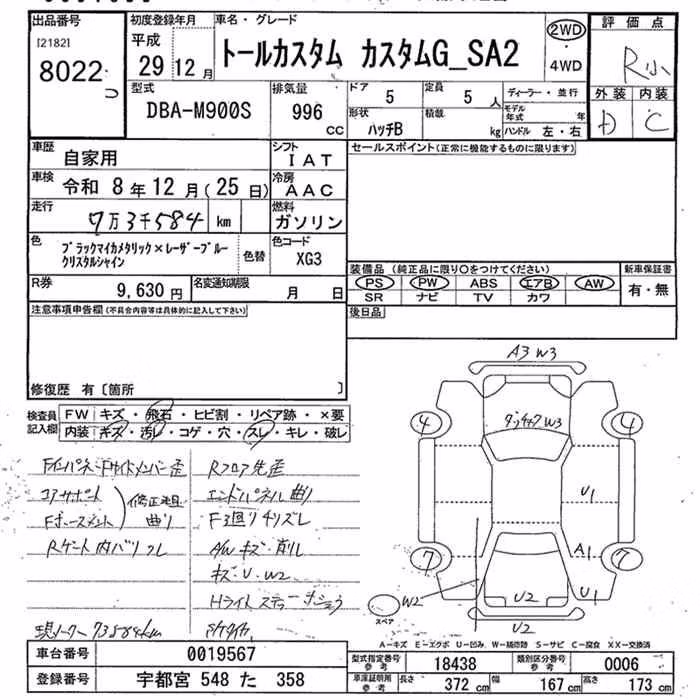 出品番号 初度登録年月 車名・グレード 評価点
[2182] 平成 2WD
8022 29 12月 トールカスタム カスタムG_SA2 R小
つ 4WD
型式 排気量 ドア 定員 ディーラー・並行 外装 内装
DBA-M900S 996 CC 5 5人 モデル年式 年 D C
形状 積載
ハッチB kg ハンドル 左・右
車歴 自家用 シフト IAT セールスポイント(正常に機能するものに限ります)
車検 令和 8年 12月(25日) 冷房 AAC
走行 7万3千584 km 燃料 ガソリン
色 ブラックマイカメタリック×レーザーブルー 色替 色コード
クリスタルシャイン XG3
装備品 (純正品に限り○をつけてください) 新車保証書
R券 9,630円 名変通知期限 月 日 PS PW ABS エアB AW 有・無
SR ナビ TV カワ
注意事項申告欄(不具合内容等は具体的に記入して下さい) 後日品
修復歴 有〔箇所 〕
A3 W3
検査員 FW キズ・飛石・ヒビ割・リペア跡・×要
記入欄 内装 キズ・汚レ・コゲ・穴・スレ・キレ・破レ
4 4
W3
Fインパネ Fサイドメンバー歪 Rフロア先歪
コアサポート 修正追 エンドパネル曲り
曲り F3廻りチリズレ
U1
Rゲート内バリ A/W キズ・削レ
キズ・U・W2
7 A1 7
W2 U2 U1
スペア U2
現メーター73584km
A−キズ E−エクボ U−凹み W−補修跡 S−サビ C−腐食 XX−交換済
車台番号 0019567 型式指定番号 参考 18438 類別区分番号 参考 0006
登録番号 宇都宮 548 た 358 車庫証明用 参考 長さ 372 cm 幅 167 cm 高さ 173 cm